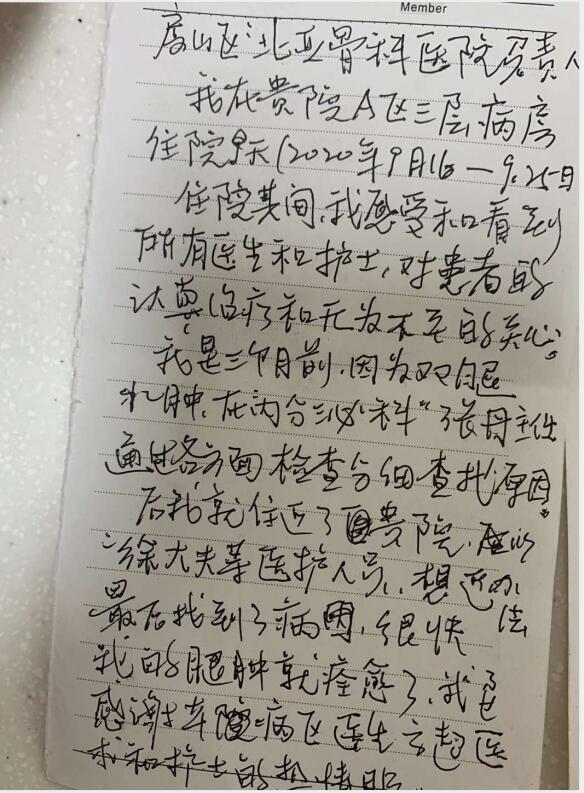 Member
房山区"北亚骨科医院负责人
我在贵院A区三层病房
住院9天(2020年9月16—9.25日
住院其间,我感受和看到
所有医生和护士,对患者的
认真治疗和无为不至的关心。
我是三个月前,因为双白腿
水肿,在内分泌科"张丹主任
通过各方面检查分细查找原因。
后我就住近了贵院,
"徐大夫等医护人员,想近办法
最后找到了病因,很快
我的腿肿就痊愈了,我
感谢 病区医生 医
和护士的热情服